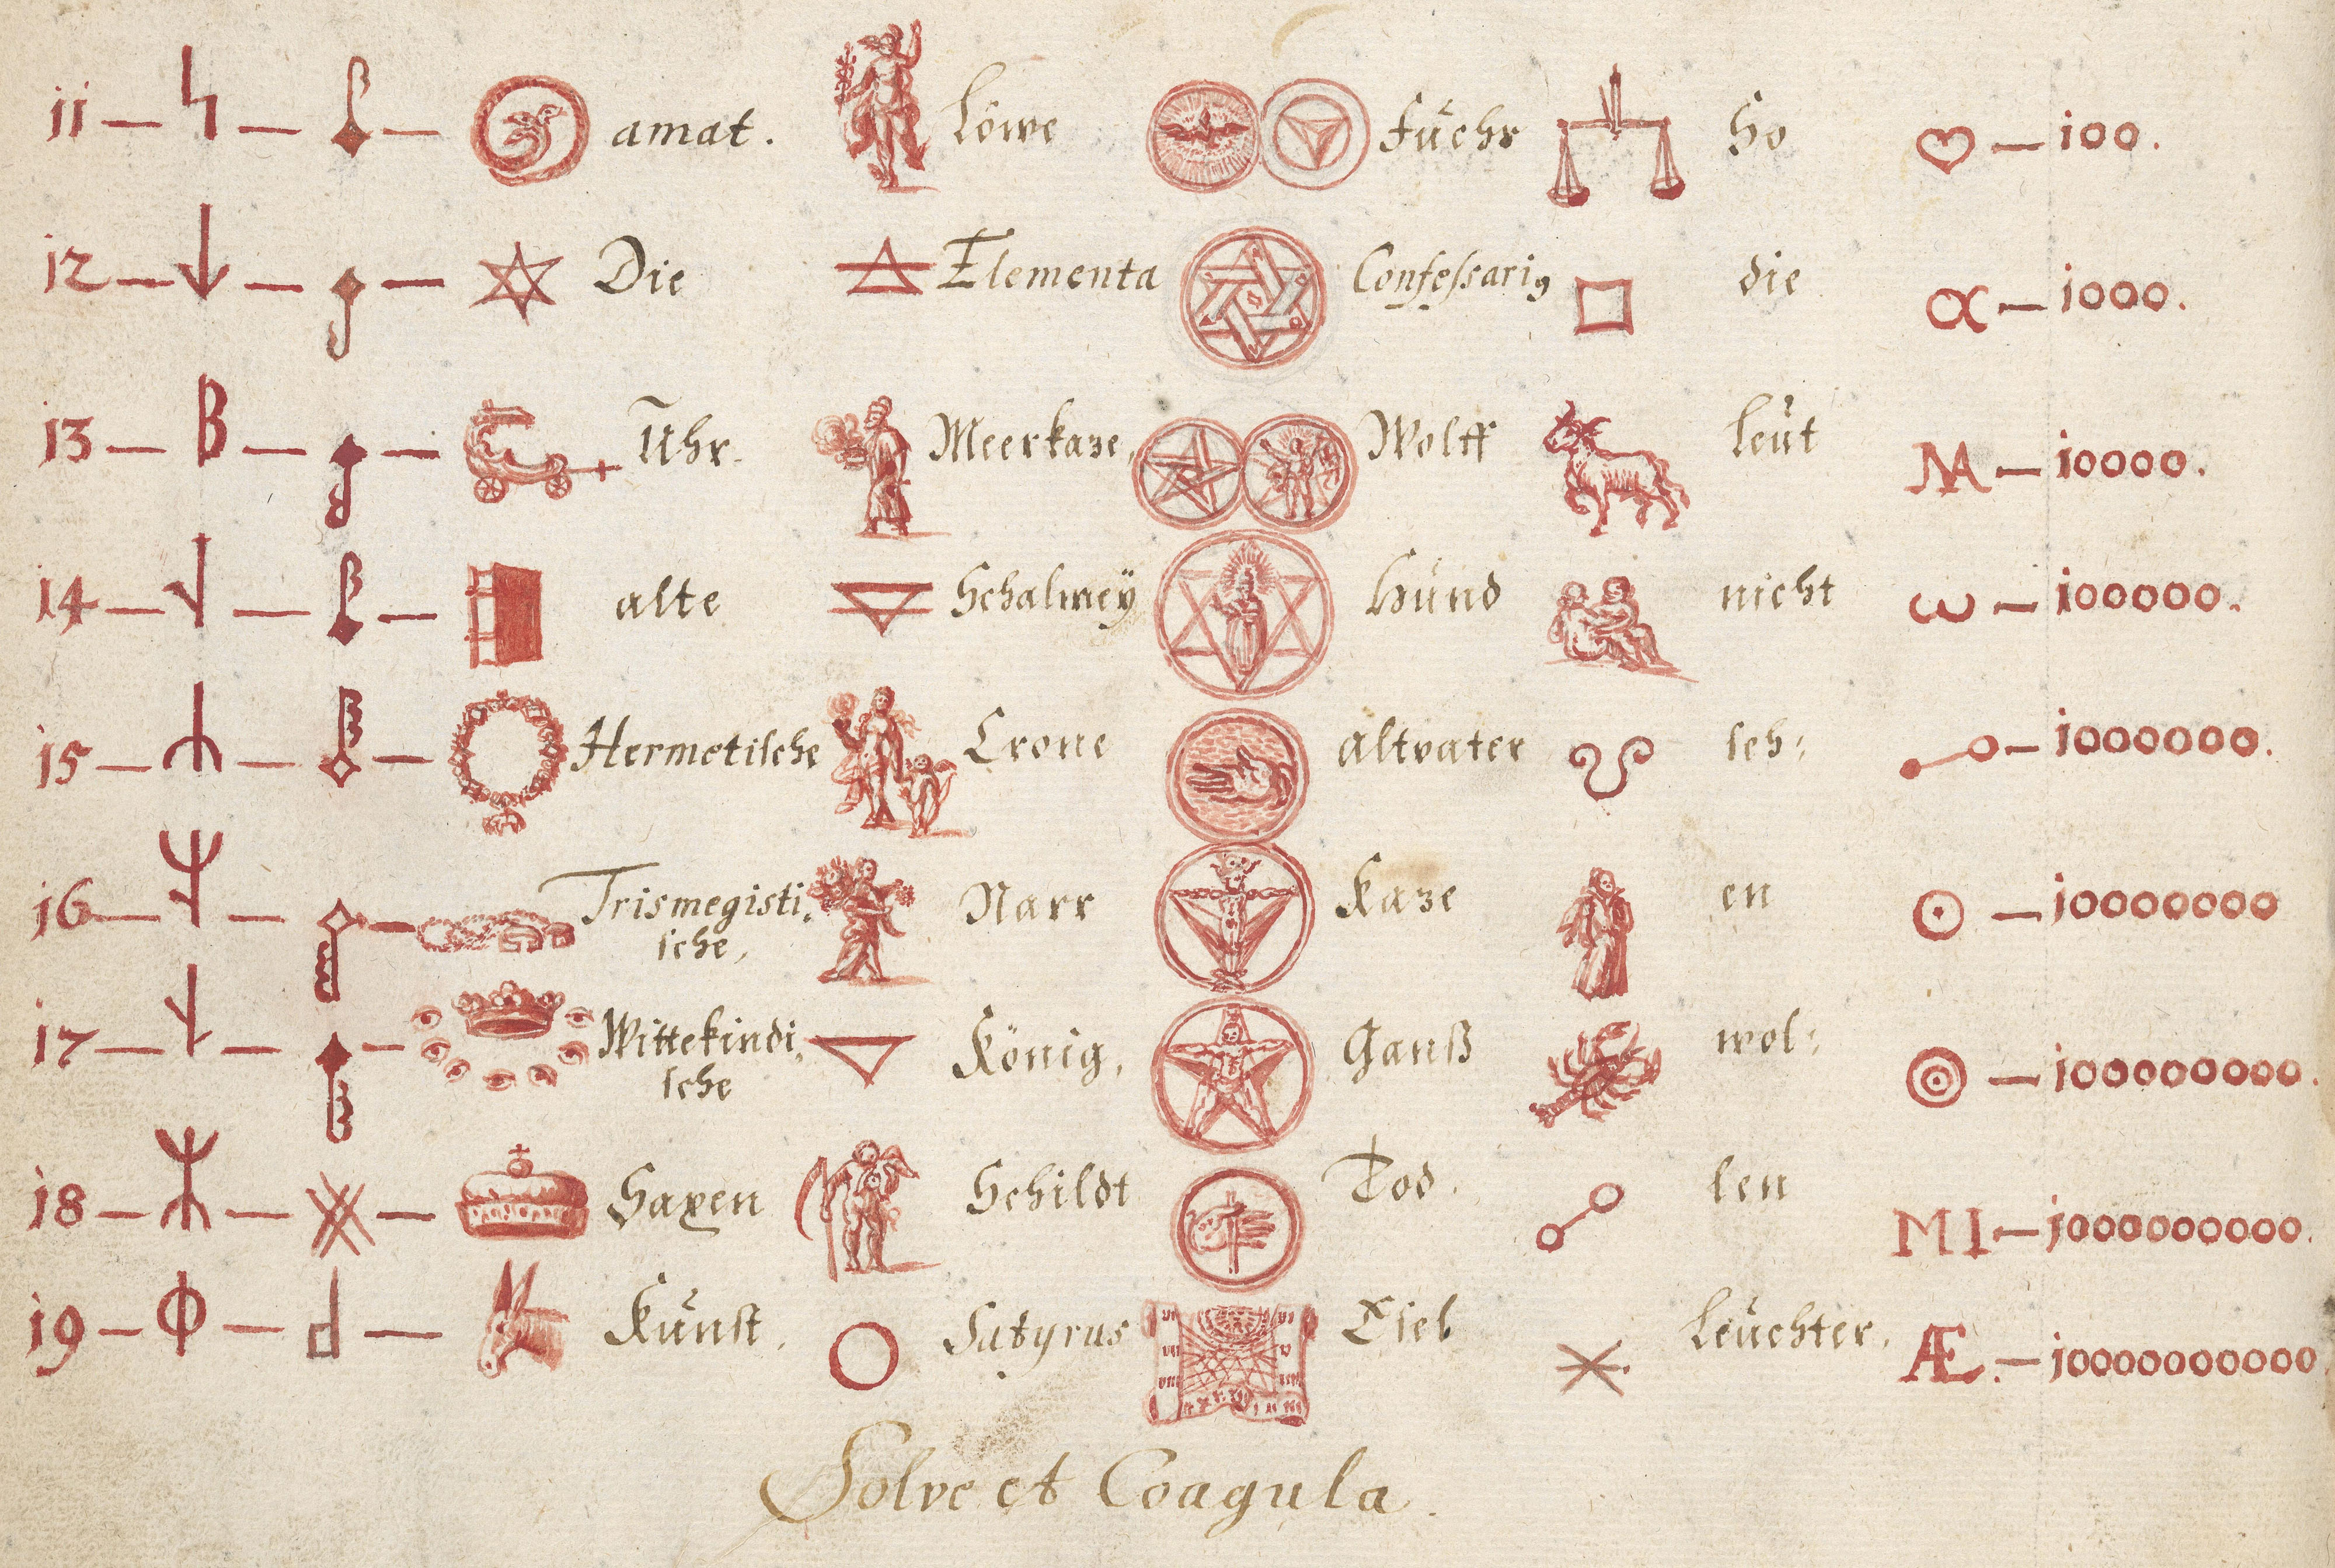 11 — — — amat. Löwe Füchs Ho — 100.
12 — — — Die Elementa Confeſsariꝰ die α — 1000.
13 — — — Uhr. Meerkaze, Wolff leüt MA — 10000.
14 — — — alte Schalmeÿ Hund nicht ω — 100000.
15 — — — Hermetiſche Crone altvater ſeh: — 1000000.
16 — — — Trismegisti, Narr Kaze en ☉ — 10000000
ſche,
17 — — — Wittekindi, König, Ganß wol: — 100000000.
ſche
18 — — — Saxen Schildt Tod. len MI — 1000000000.
19 — Φ — — Kunſt, Satyrus Eſel leüchter. Æ. — 10000000000.
Solve et Coagula.